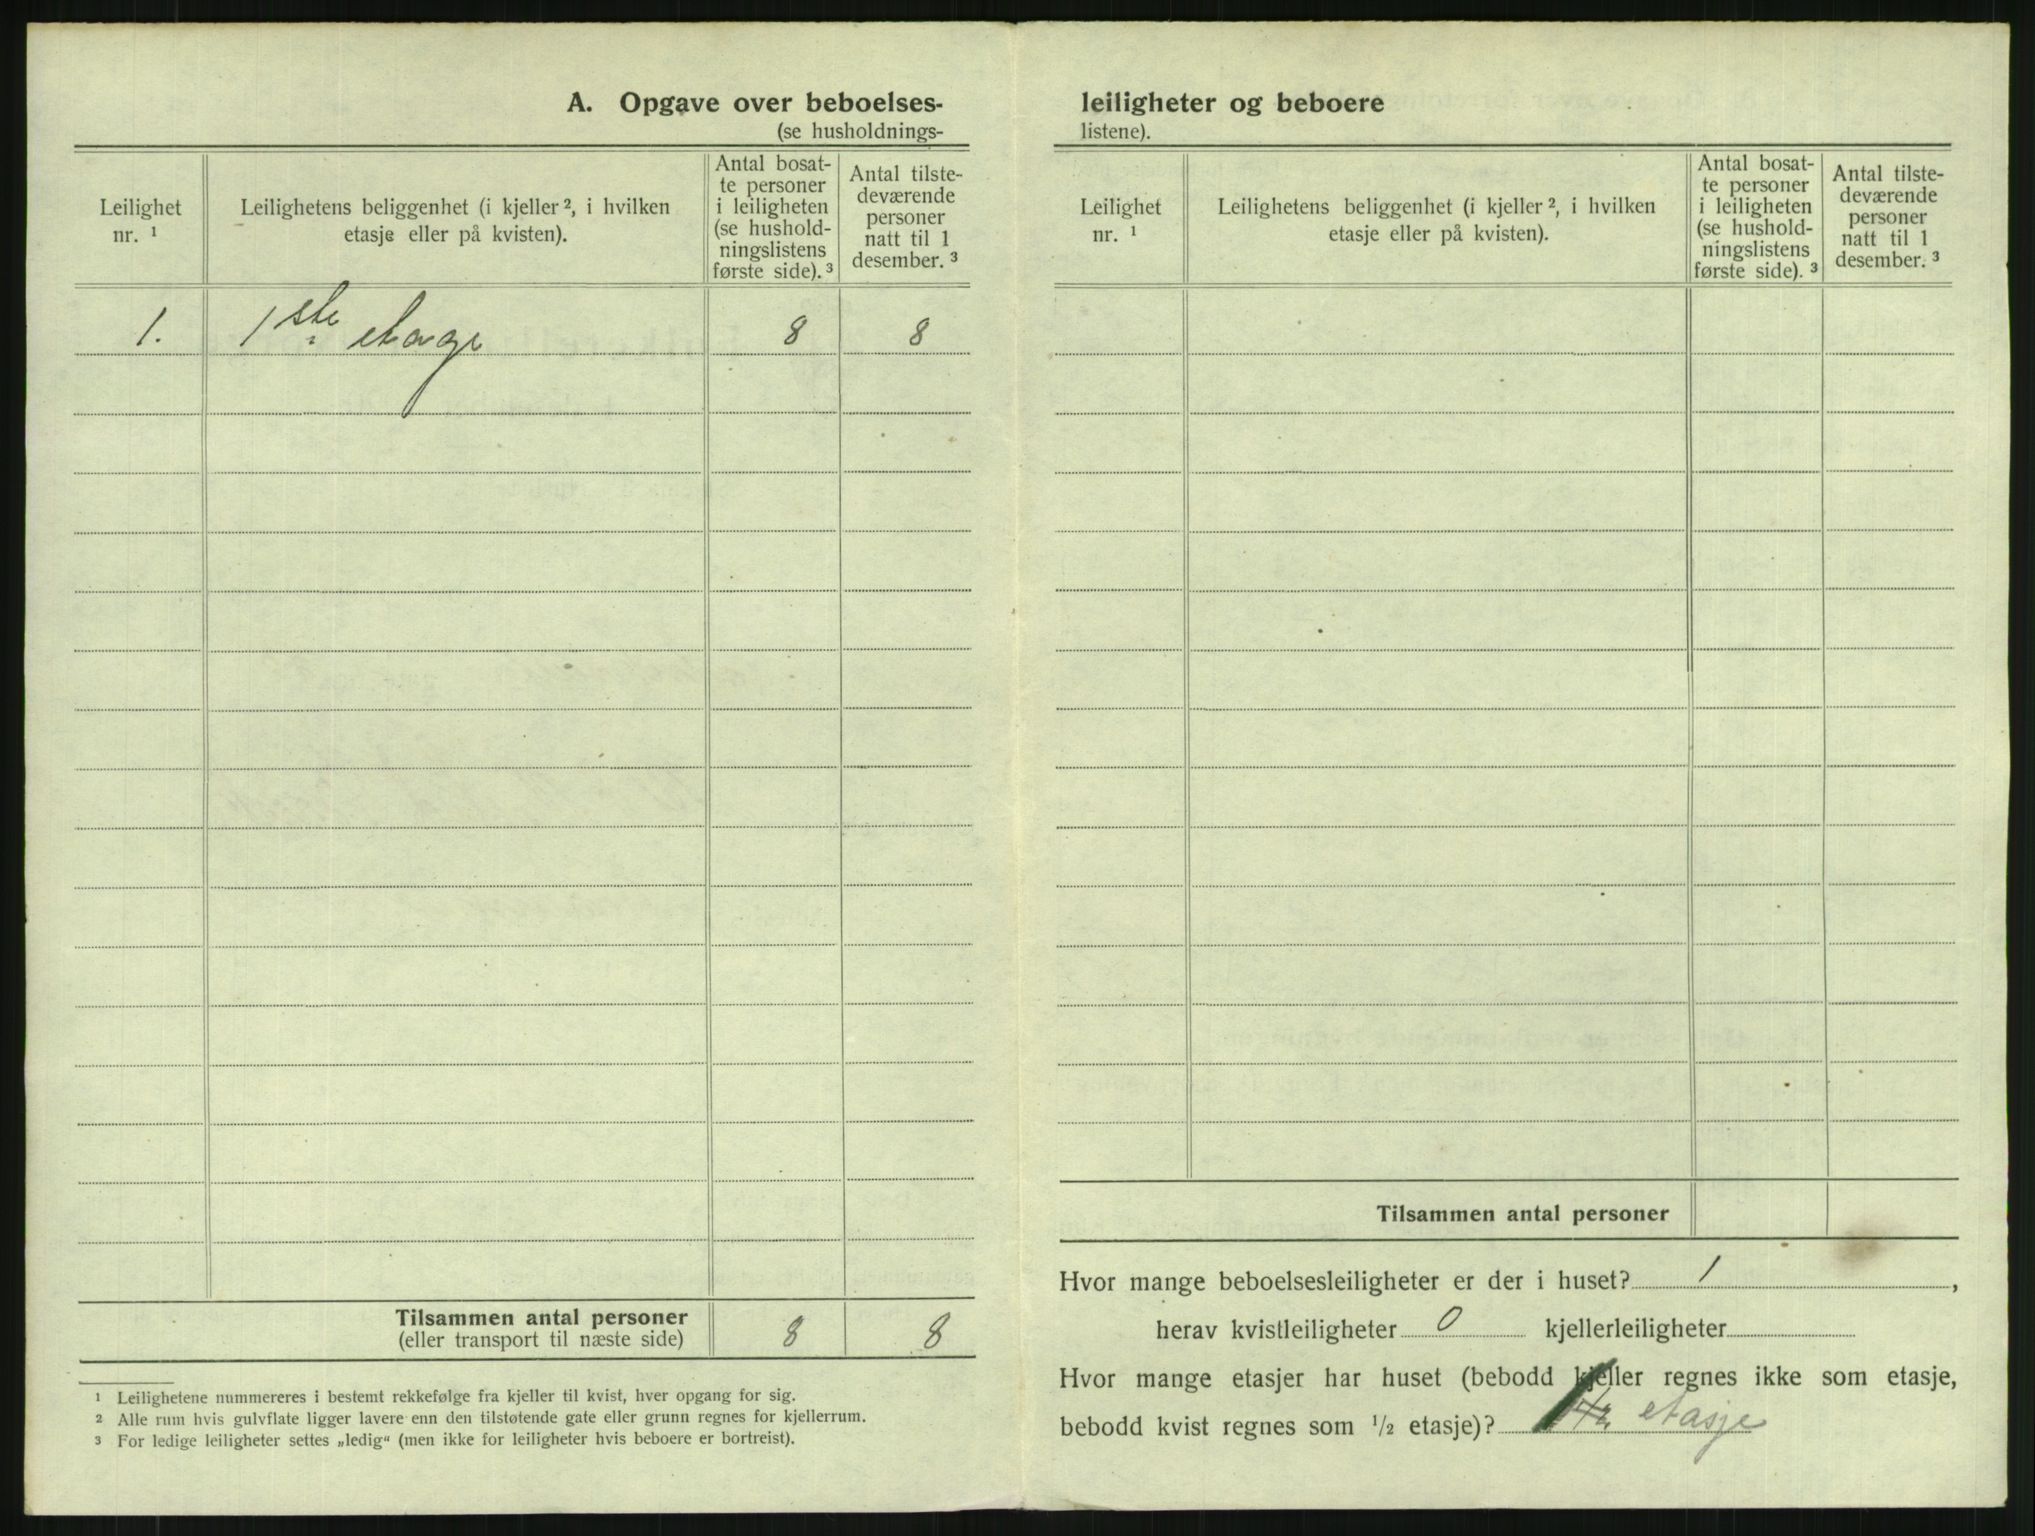 A. Opgave over beboelses-
(se husholdnings-
Leilighet
nr. ¹
Leilighetens beliggenhet (i kjeller ², i hvilken
etasje eller på kvisten).
Antal bosat-
te personer
i leiligheten
(se hushold-
ningslistens
første side). ³
Antal tilste-
deværende
personer
natt til 1
desember. ³
1. 1ste etage 8 8
Tilsammen antal personer
(eller transport til næste side)
8 8
¹ Leilighetene nummereres i bestemt rekkefølge fra kjeller til kvist, hver opgang for sig.
² Alle rum hvis gulvflate ligger lavere enn den tilstøtende gate eller grunn regnes for kjellerrum.
³ For ledige leiligheter settes „ledig“ (men ikke for leiligheter hvis beboere er bortreist).
leiligheter og beboere
listene).
Leilighet
nr. ¹
Leilighetens beliggenhet (i kjeller ², i hvilken
etasje eller på kvisten).
Antal bosat-
te personer
i leiligheten
(se hushold-
ningslistens
første side). ³
Antal tilste-
deværende
personer
natt til 1
desember. ³
Tilsammen antal personer
Hvor mange beboelsesleiligheter er der i huset? 1,
herav kvistleiligheter 0 kjellerleiligheter
Hvor mange etasjer har huset (bebodd kjeller regnes ikke som etasje,
bebodd kvist regnes som ½ etasje)? etasje